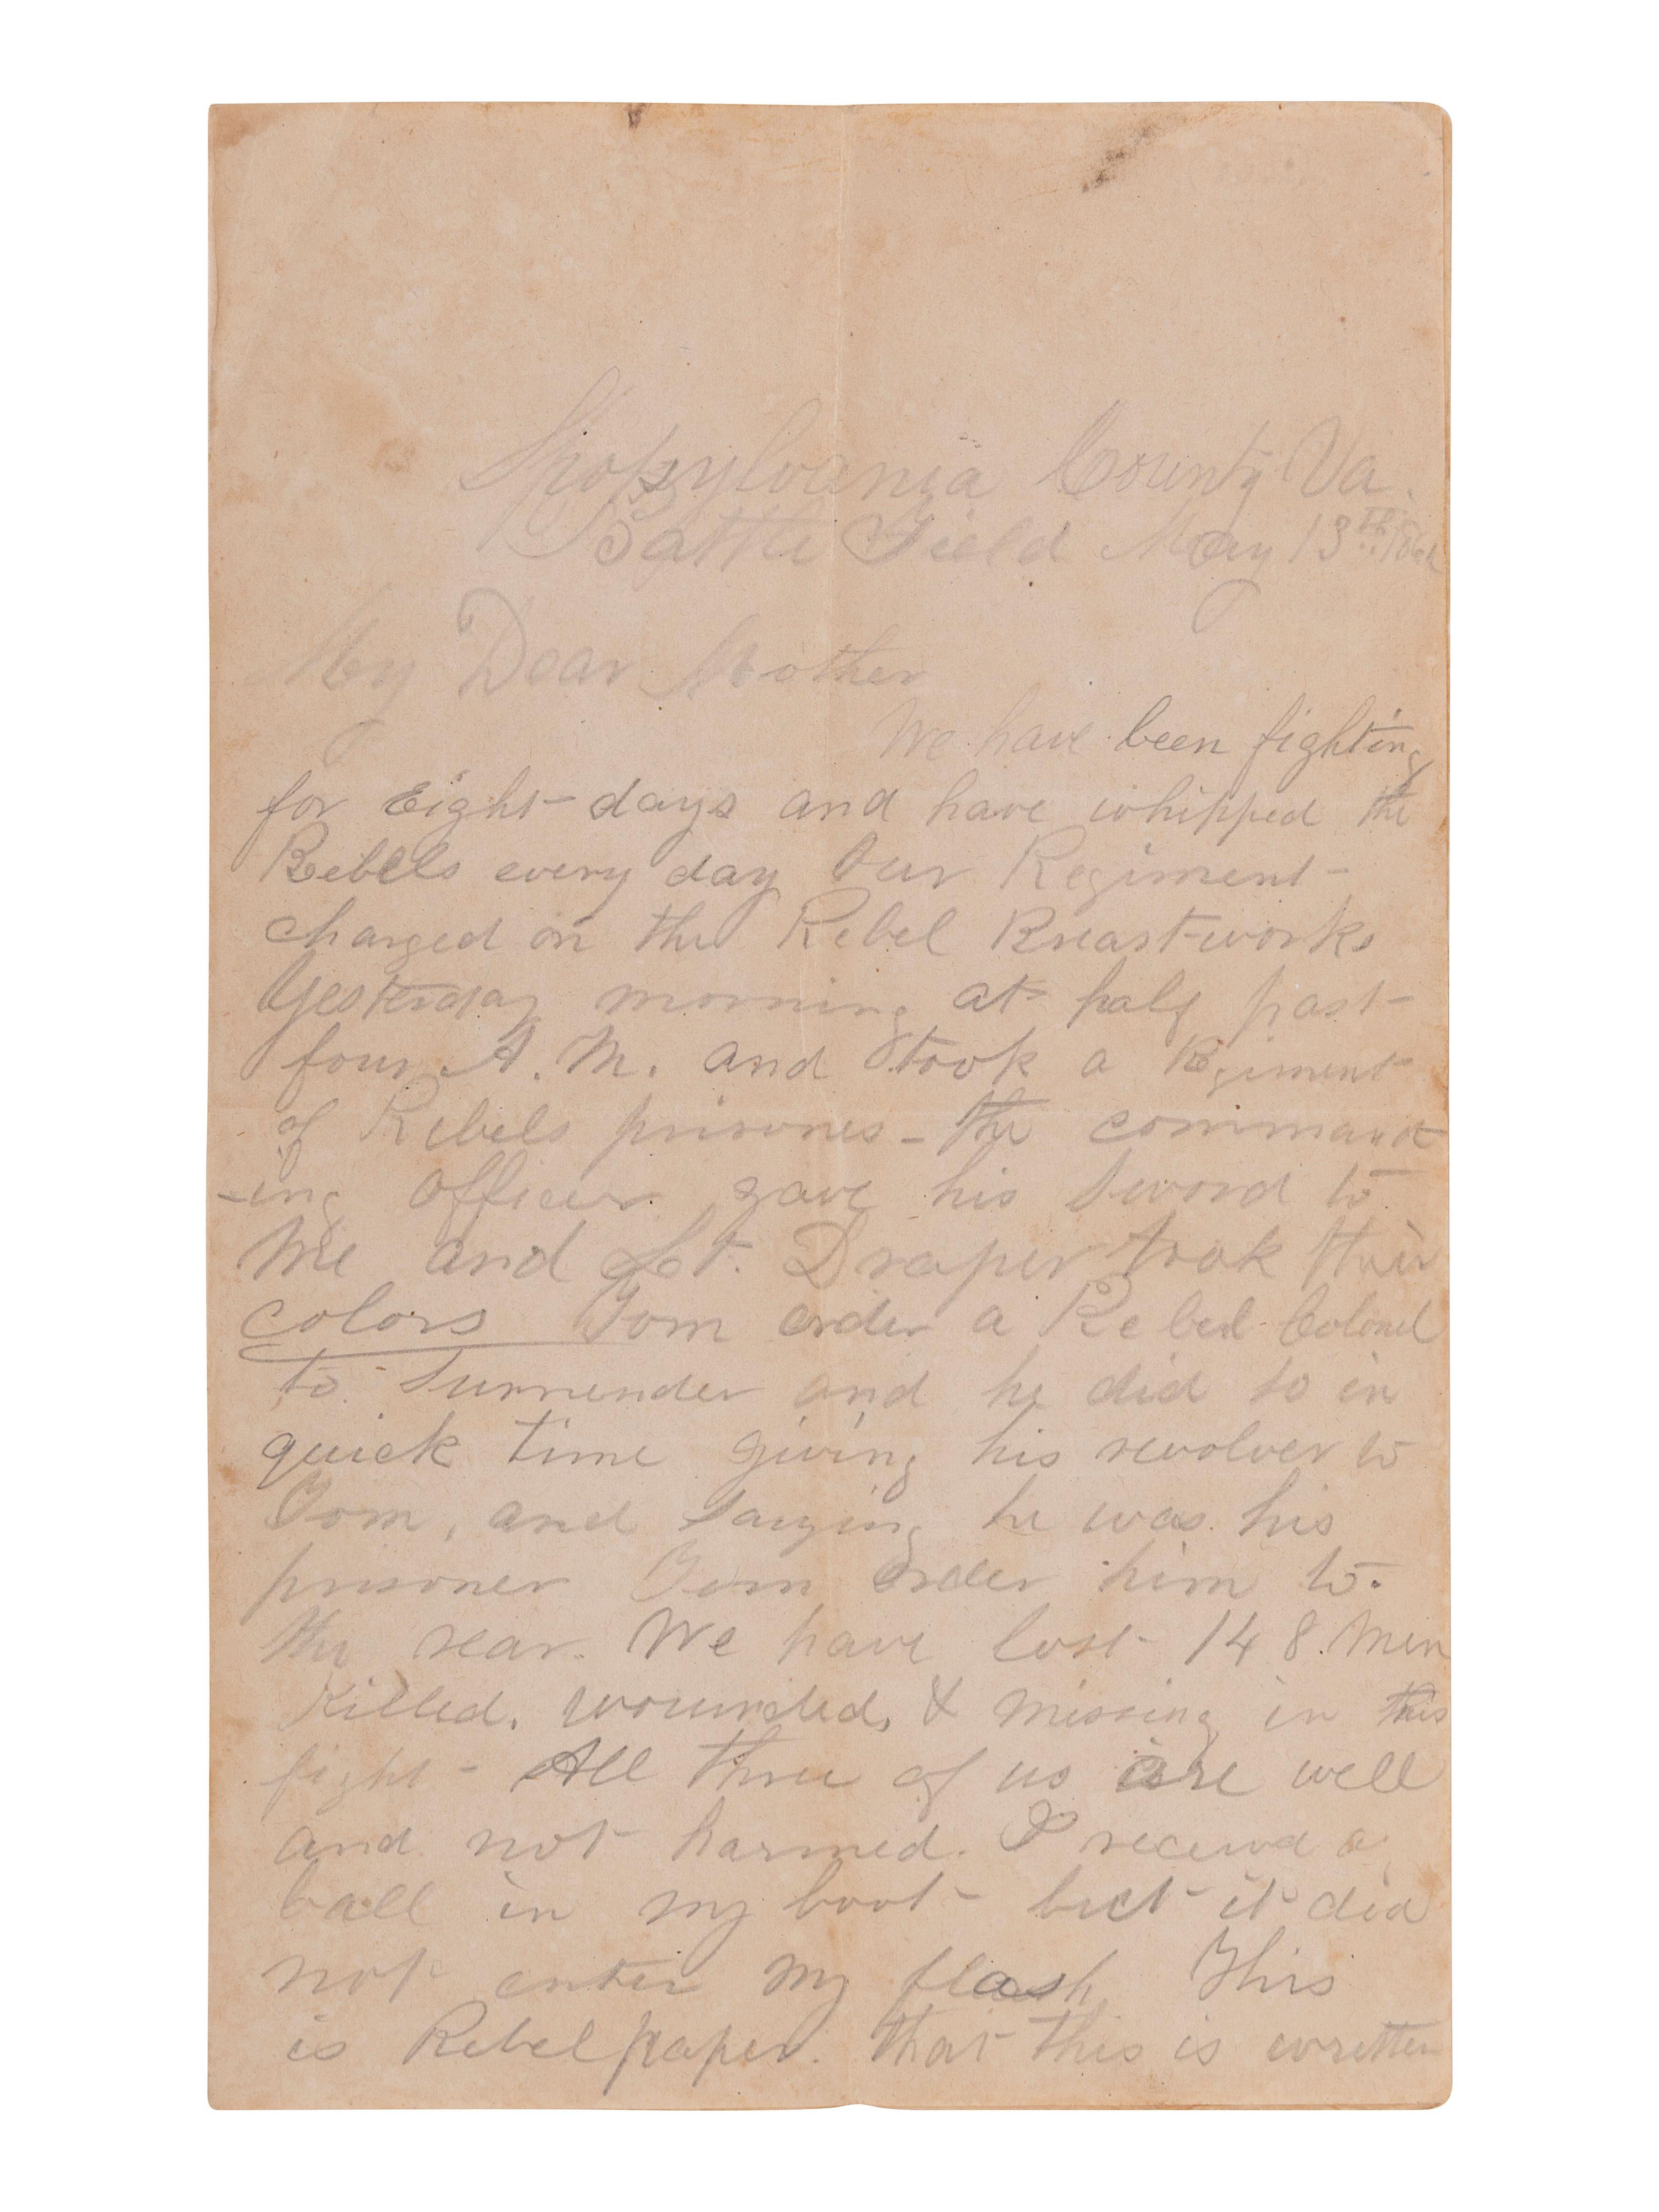 Spotsylvania County Va.
Battle Field May 13th 1864
My Dear Mother
We have been fighting
for Eight days and have whipped the
Rebels every day Our Regiment
charged on the Rebel Breastworks
Yesterday morning at half past
four A. M. and took a Regiment
of Rebels prisones - the command
-ing officer gave his Sword to
Me and Lt. Draper took their
colors Tom order a Rebel Colonel
to Surrender and he did so in
quick time giving his revolver to
Tom, and Saying he was his
prisoner Tom order him to
the rear. We have lost 148. Men
Killed, wounded, & missing in this
fight - All three of us are well
and not harmed. I received a
ball in my boot - but it did
not enter my flesh This
is Rebel paper. that this is written